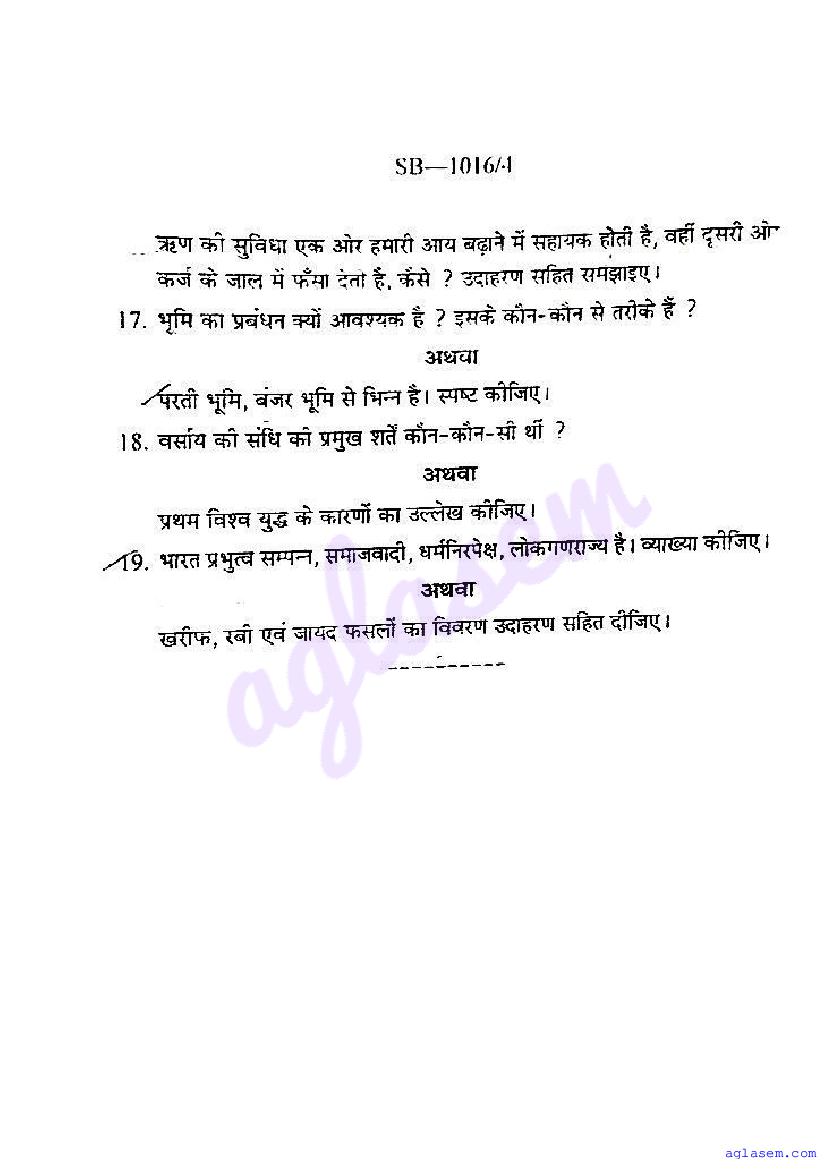 SB—1016/4
ऋण की सुविधा एक ओर हमारी आय बढ़ाने में सहायक होती है, वहीं दूसरी ओ
कर्ज के जाल में फँसा देता है, कैसे ? उदाहरण सहित समझाइए।
17. भूमि का प्रबंधन क्यों आवश्यक है ? इसके कौन-कौन से तरीके हैं ?
अथवा
परती भूमि, बंजर भूमि से भिन्न है। स्पष्ट कीजिए।
18. वर्साय की संधि की प्रमुख शर्तें कौन-कौन-सी थीं ?
अथवा
प्रथम विश्व युद्ध के कारणों का उल्लेख कीजिए।
19. भारत प्रभुत्व सम्पन्न, समाजवादी, धर्मनिरपेक्ष, लोकगणराज्य है। व्याख्या कीजिए।
अथवा
खरीफ, रबी एवं जायद फसलों का विवरण उदाहरण सहित दीजिए।
aglasem
aglasem.com